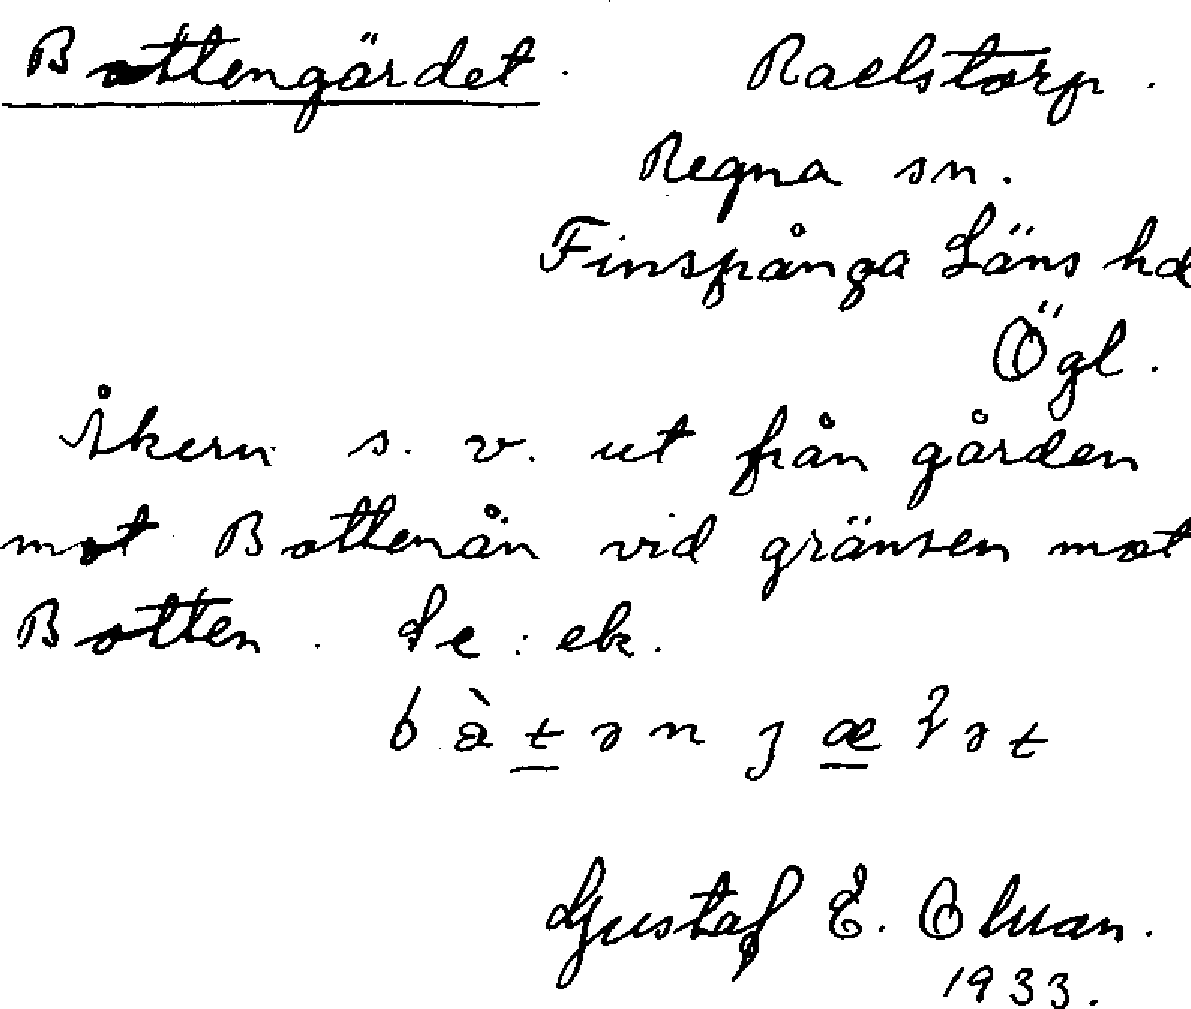 Bottengärdet. Raelstorp.
Regna sn.
Finspånga Läns hd
Ögl.
Åkern s. v. ut från gården
mot Bottenån vid gränsen mot
Botten. Se: ek.
Gustaf E. Olman.
1933.